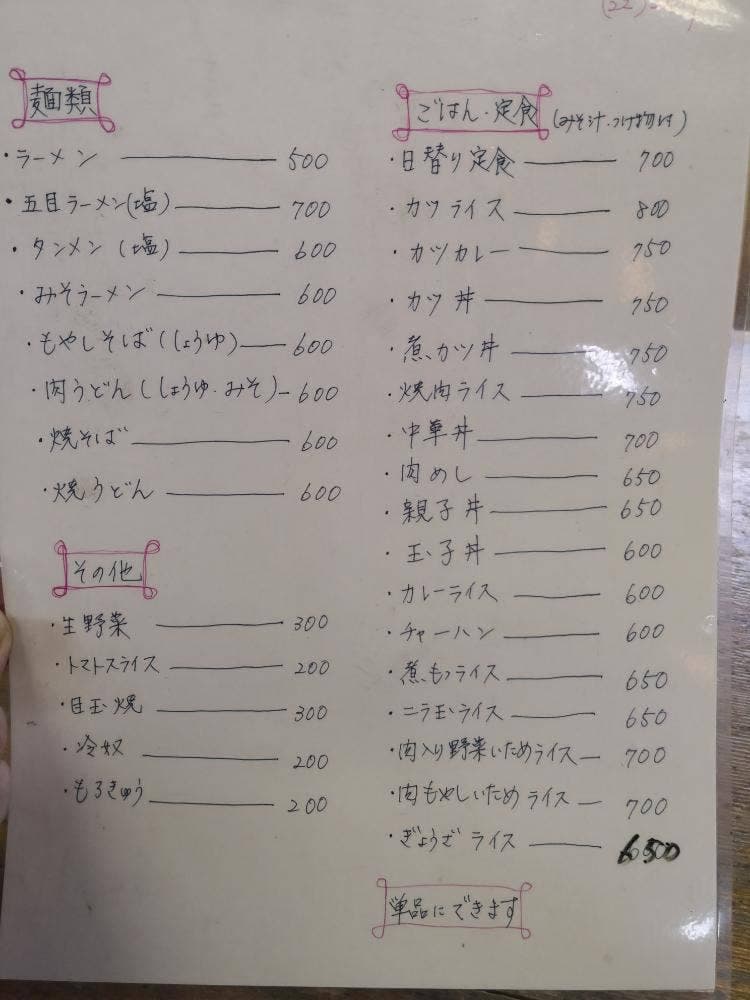 麺類
・ラーメン 500
・五目ラーメン(塩) 700
・タンメン (塩) 600
・みそラーメン 600
・もやしそば(しょうゆ) 600
・肉うどん(しょうゆ・みそ) 600
・焼そば 600
・焼うどん 600
その他
・生野菜 300
・トマトスライス 200
・目玉焼 300
・冷奴 200
・もろきゅう 200
ごはん・定食 (みそ汁・つけ物付)
・日替り定食 700
・カツライス 800
・カツカレー 750
・カツ丼 750
・煮カツ丼 750
・焼肉ライス 750
・中華丼 700
・肉めし 650
・親子丼 650
・玉子丼 600
・カレーライス 600
・チャーハン 600
・煮もつライス 650
・ニラ玉ライス 650
・肉入り野菜いためライス 700
・肉もやしいためライス 700
・ぎょうざライス 650
単品にできます